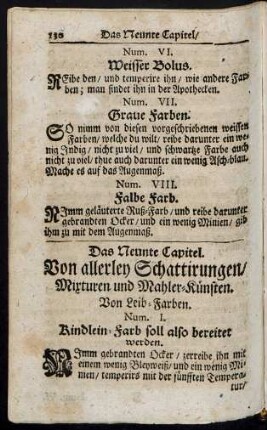 130 Das Neunte Capitel/
Num. VI.
Weisser Bolus.
REibe den/ und temperire ihn/ wie andere Far-
ben; man findet ihn in der Apothecken.
Num. VII.
Graue Farben.
SO nimm von diesen vorgeschriebenen weissen
Farben/ welche du wilt/ reibe darunter ein we-
nig Indig/ nicht zu viel/ und schwartze Farbe auch
nicht zu viel/ thue auch darunter ein wenig Asch-blau.
Mache es auf das Augenmaß.
Num. VIII.
Falbe Farb.
NImm geläuterte Ruß-Farb/ und reibe darunter
gebrandten Ocker/ und ein wenig Minien/ gib
ihm zu mit dem Augenmaß.
Das Neunte Capitel.
Von allerley Schattirungen/
Mixturen und Mahler-Künsten.
Von Leib-Farben.
Num. I.
Kindlein-Farb soll also bereitet
werden.
NImm gebrandten Ocker/ zerreibe ihn mit
einem wenig Bleyweiß/ und ein wenig Mi-
nien/ temperirs mit der fünfften Tempera-
tur/